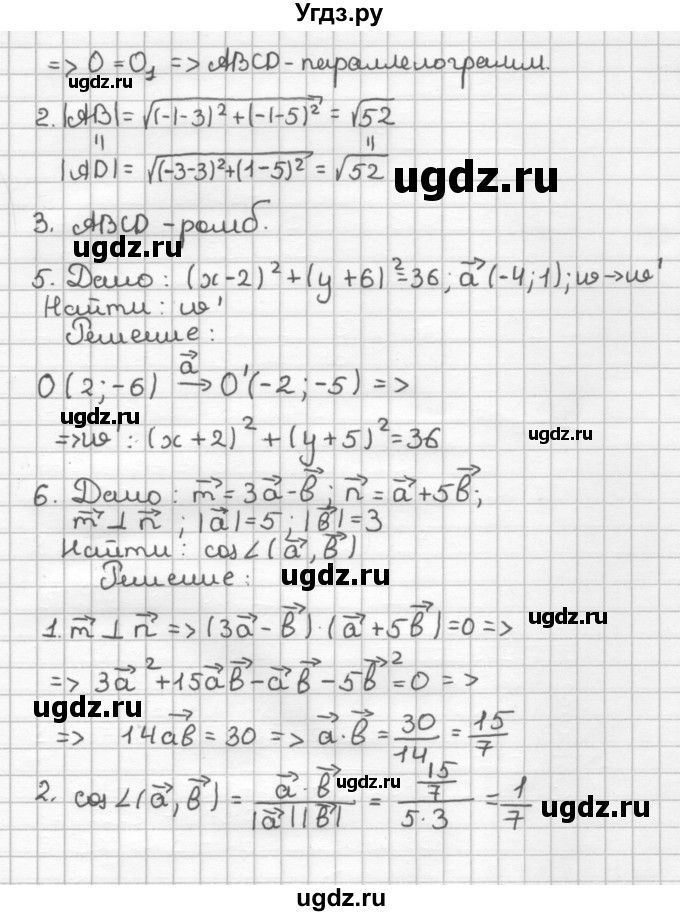 Угдз.ру
=> O = O₁ => ABCD - параллелограмм.
ugdz.ru
2. |AB| = √((-1-3)² + (-1-5)²) = √52
|| ||
|AD| = √((-3-3)² + (1-5)²) = √52
ugdz.ru
3. ABCD - ромб.
ugdz.ru
5. Дано: (x-2)² + (y+6)² = 36; a⃗ (-4; 1); w → w'
Найти: w'
Решение:
O(2; -6) →a⃗ O'(-2; -5) =>
ugdz.ru
=> w': (x+2)² + (y+5)² = 36
ugdz.ru
6. Дано: m⃗ = 3a⃗ - b⃗; n⃗ = a⃗ + 5b⃗;
m⃗ ⊥ n⃗; |a⃗| = 5; |b⃗| = 3
Найти: cos∠(a⃗, b⃗)
Решение:
ugdz.ru
1. m⃗ ⊥ n⃗ => (3a⃗ - b⃗)·(a⃗ + 5b⃗) = 0 =>
ugdz.ru
=> 3a⃗² + 15a⃗b⃗ - a⃗b⃗ - 5b⃗² = 0 =>
ugdz.ru
=> 14ab⃗ = 30 => a⃗·b⃗ = 30/14 = 15/7
2. cos∠(a⃗, b⃗) = a⃗·b⃗/|a⃗||b⃗| = (15/7)/(5·3) = 1/7
ugdz.ru
ugdz.ru
ugdz.ru